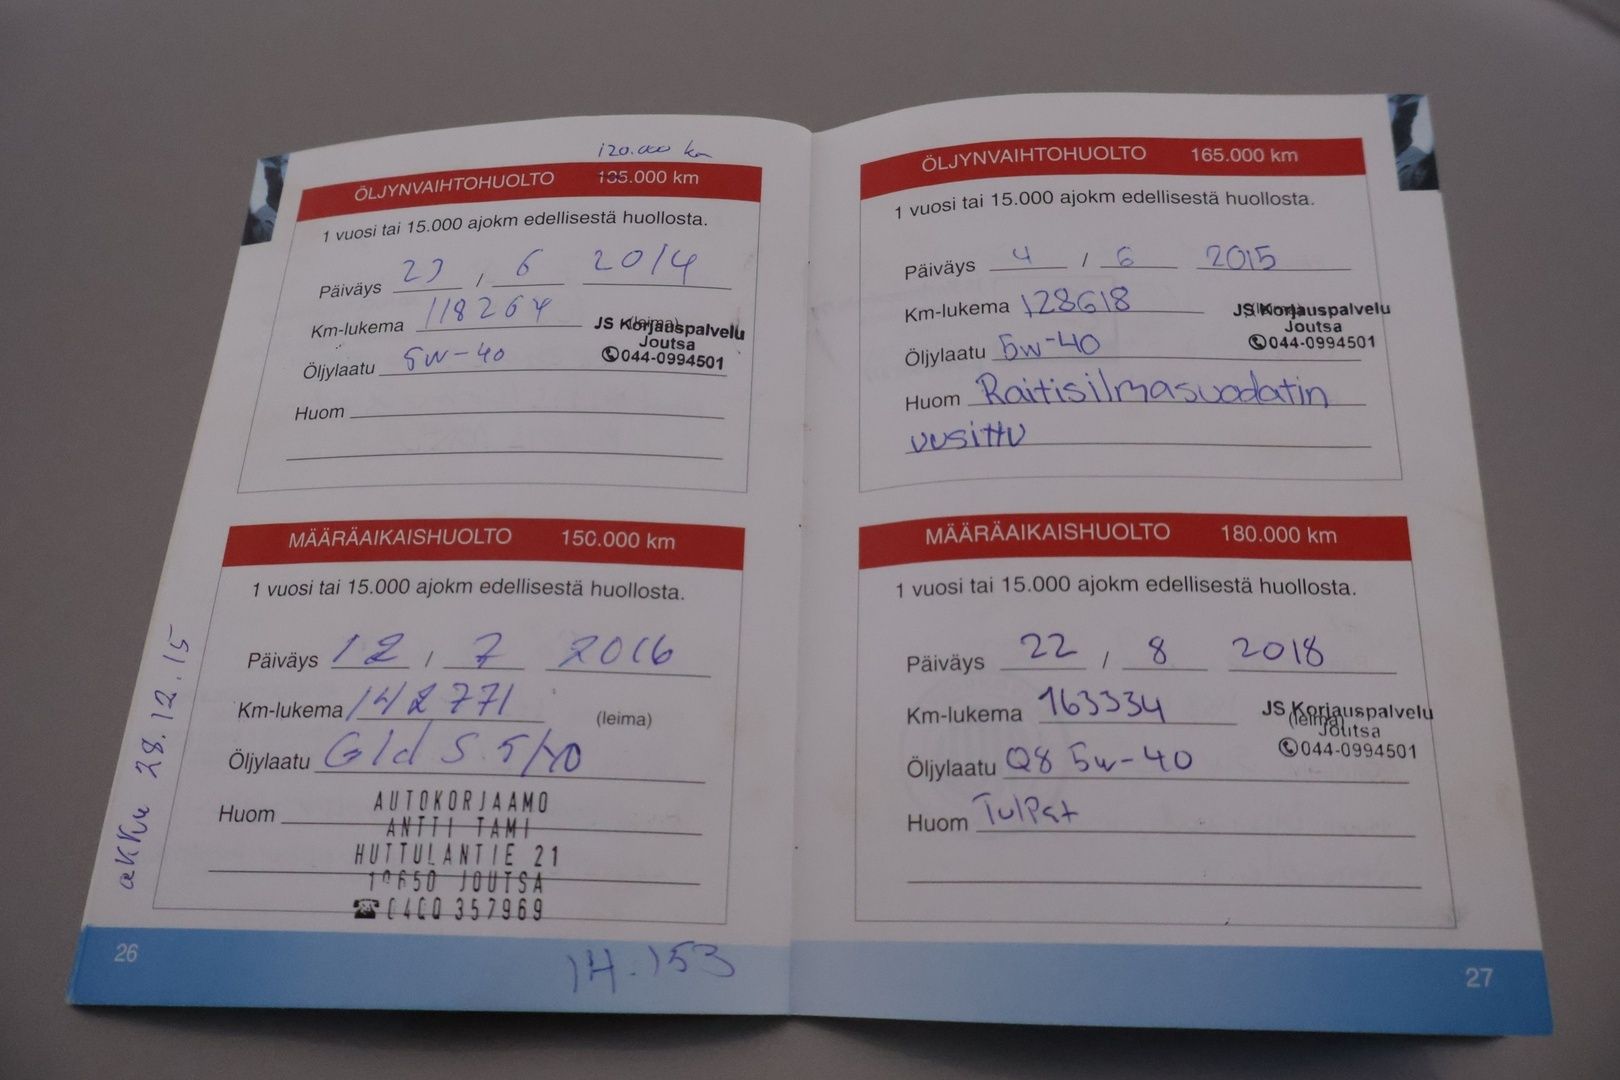 120.000 km
ÖLJYNVAIHTOHUOLTO 135.000 km
1 vuosi tai 15.000 ajokm edellisestä huollosta.
Päiväys 23 / 6 2014
Km-lukema 118264 (leima)
JS Korjauspalvelu
Joutsa
044-0994501
Öljylaatu 5w-40
Huom
MÄÄRÄAIKAISHUOLTO 150.000 km
1 vuosi tai 15.000 ajokm edellisestä huollosta.
Päiväys 12 / 7 2016
Km-lukema 142771 (leima)
Öljylaatu Gld S 5/40
Huom
AUTOKORJAAMO
ANTTI TAMI
HUTTULANTIE 21
19650 JOUTSA
0400 357969
akku 28.12.15
26
14.153
ÖLJYNVAIHTOHUOLTO 165.000 km
1 vuosi tai 15.000 ajokm edellisestä huollosta.
Päiväys 4 / 6 2015
Km-lukema 128618 (leima)
JS Korjauspalvelu
Joutsa
044-0994501
Öljylaatu 5w-40
Huom Raitisilmasuodatin
uusittu
MÄÄRÄAIKAISHUOLTO 180.000 km
1 vuosi tai 15.000 ajokm edellisestä huollosta.
Päiväys 22 / 8 2018
Km-lukema 163334 (leima)
JS Korjauspalvelu
Joutsa
044-0994501
Öljylaatu Q8 5w-40
Huom Tulpat
27